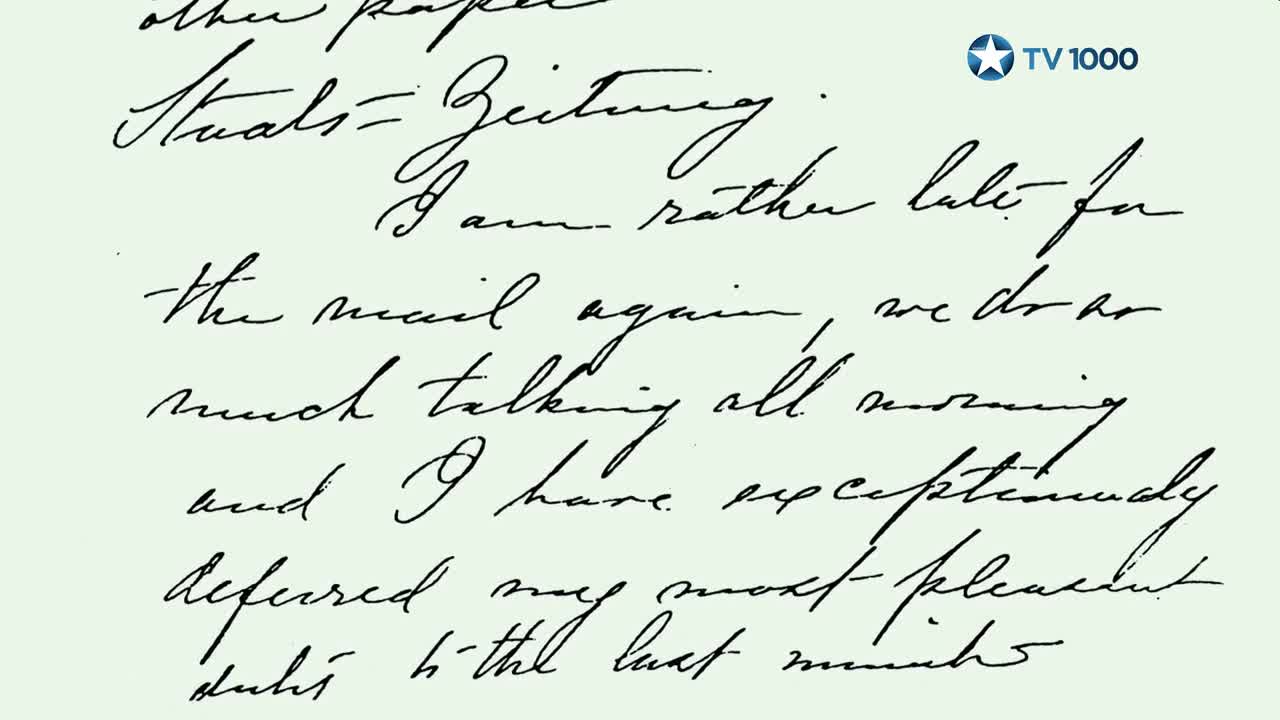 other paper
TV 1000
Staats=Zeitung.
I am rather late for
the mail again, we do so
much talking all morning
and I have exceptionally
deferred my most pleasant
duties to the last minute